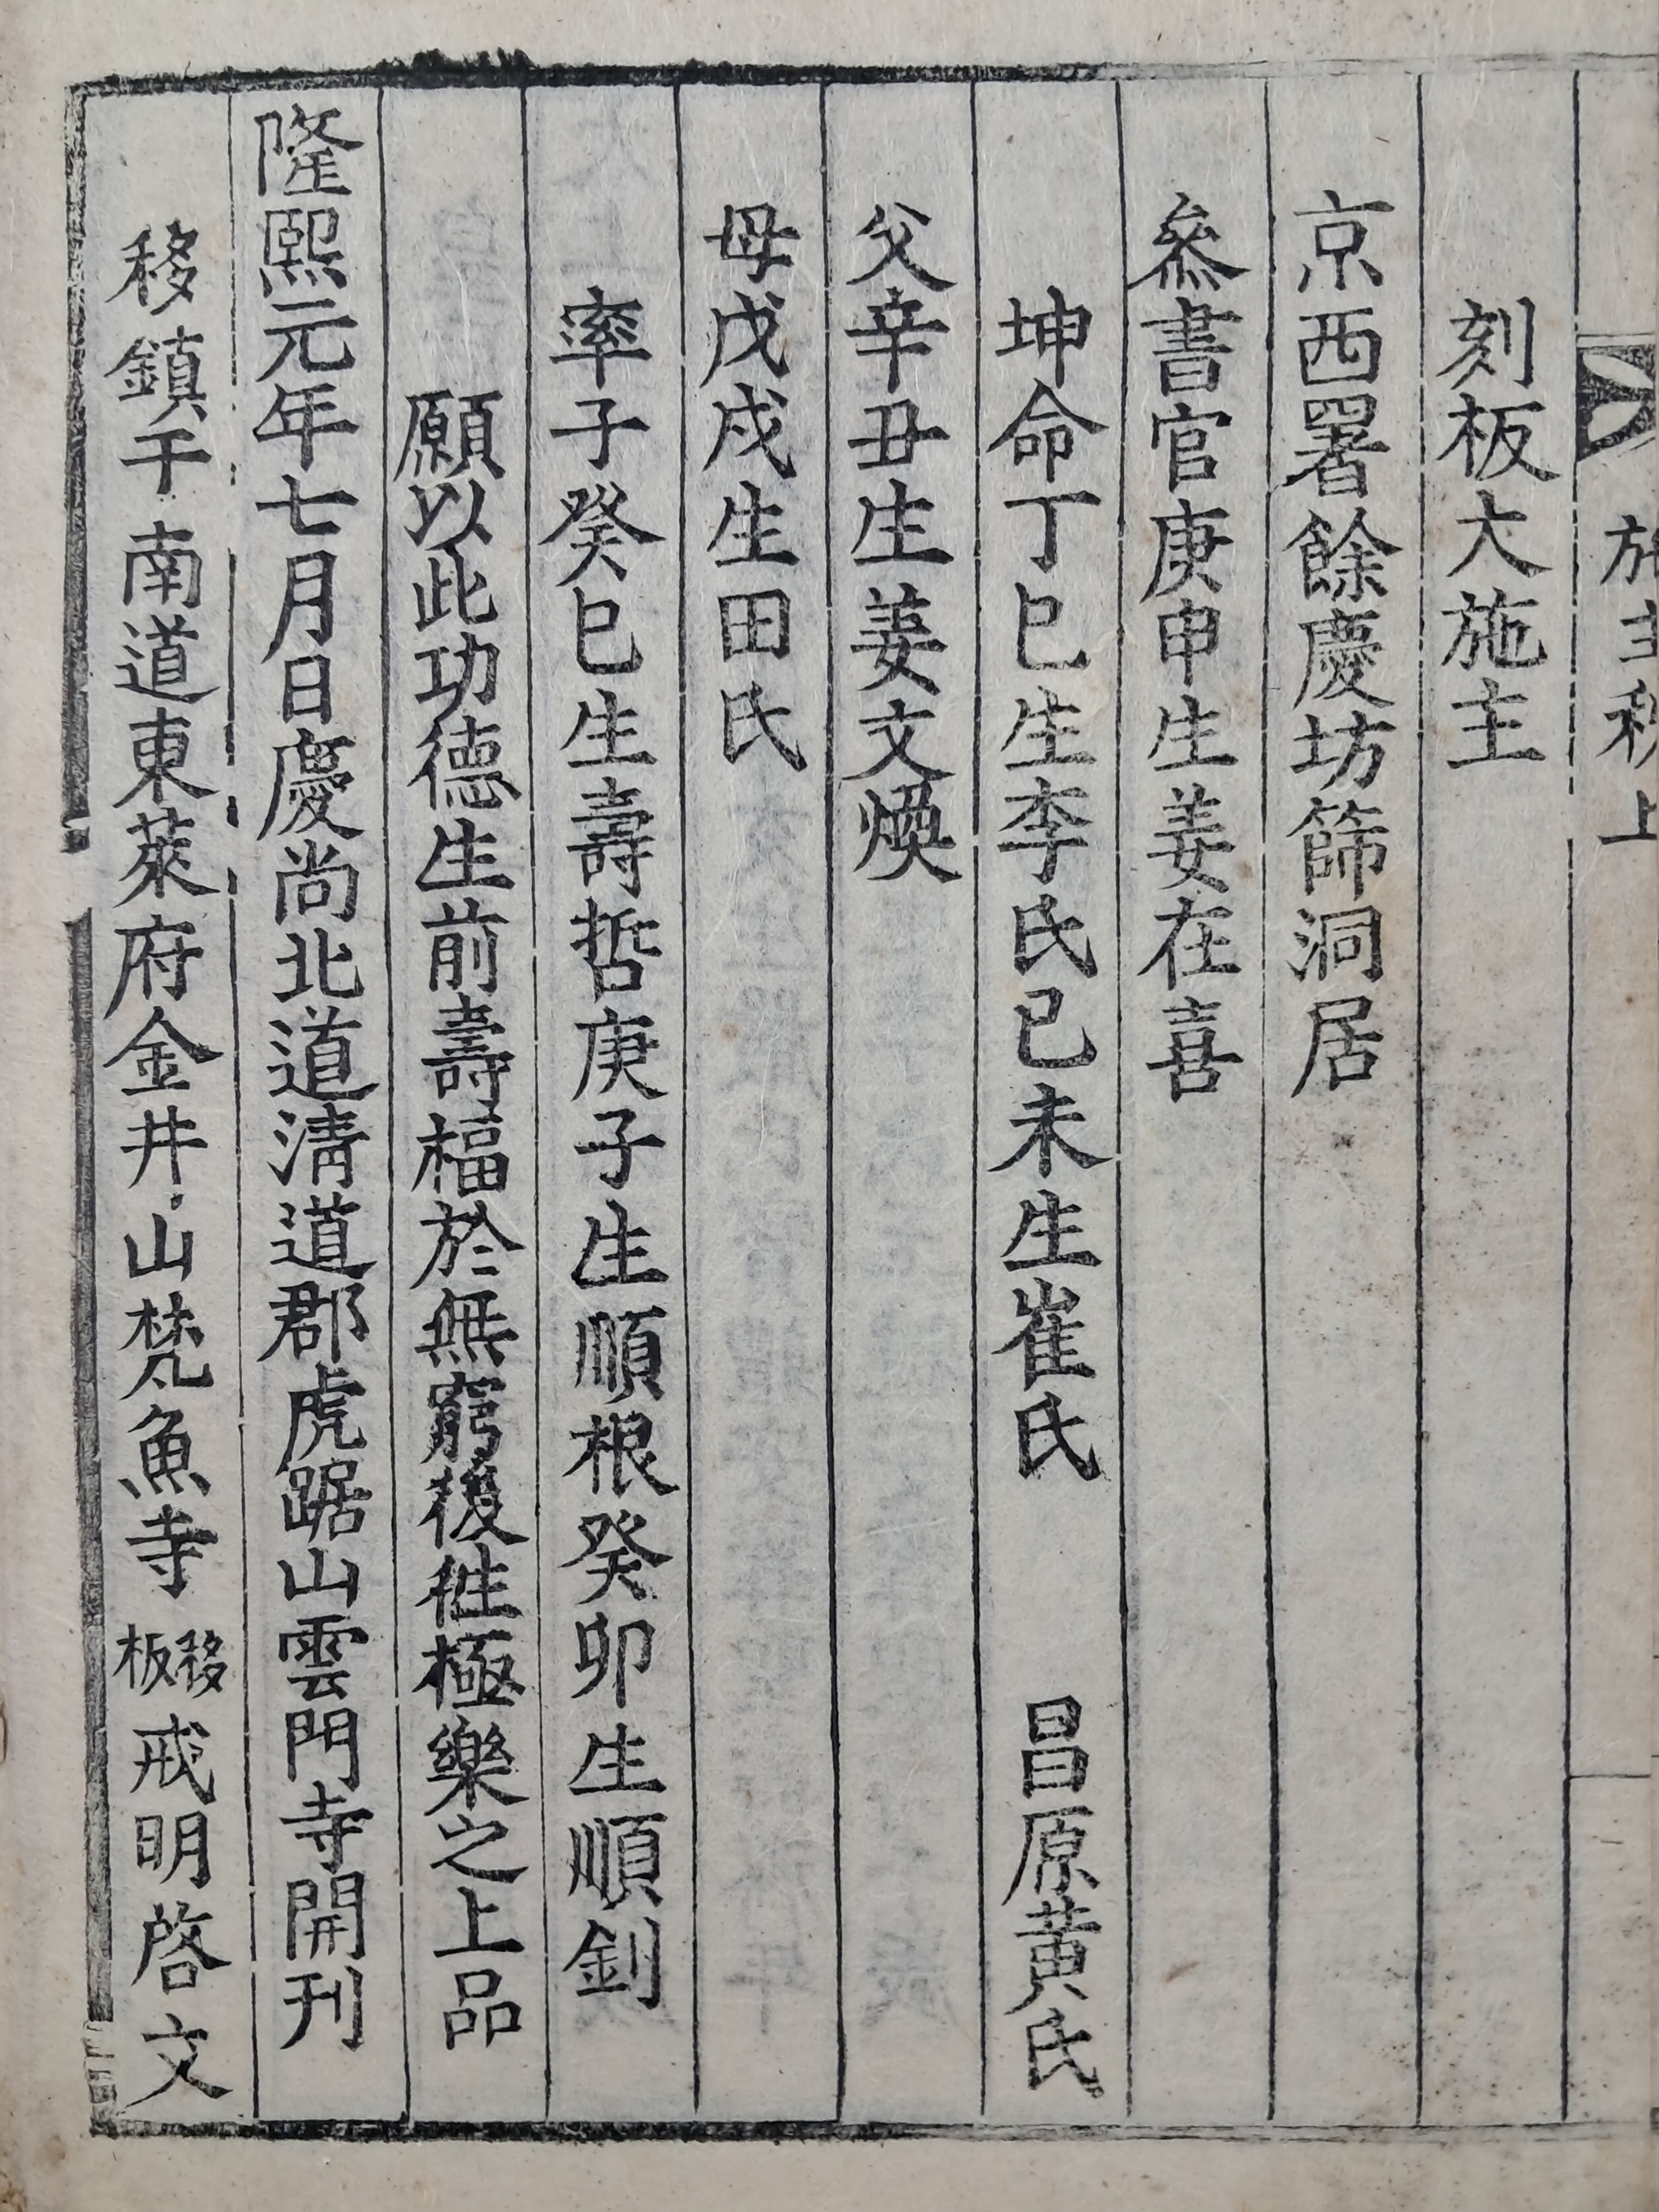 施主秩上
刻板大施主
京西署餘慶坊篩洞居
叅書官庚申生姜在喜
坤命丁巳生李氏己未生崔氏 昌原黃氏
父辛丑生姜文煥
母戊戌生田氏
率子癸巳生壽哲庚子生順根癸卯生順釗
願以此功德生前壽福於無窮後徃極樂之上品
隆熙元年七月日慶尚北道淸道郡虎踞山雲門寺開刊
移鎮于南道東萊府金井山梵魚寺移板戒明啓文